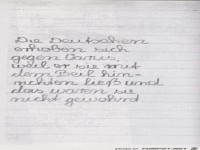 Die Deutschen
erhoben sich
gegen Varus,
weil er sie mit
dem Beil hin-
richten ließ und
das waren sie
nicht gewohnt